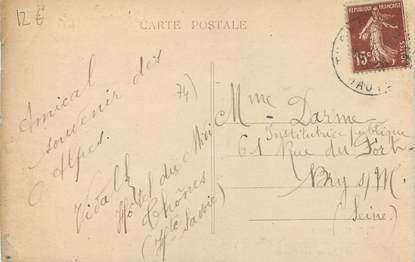 12 €
CARTE POSTALE
REPUBLIQUE FRANÇAISE
15c
POSTES
Amical
souvenir des
Alpes.
Vidal
Hôtel du Midi
Thônes
(Hte Savoie)
74)
Mme Darme
Institutrice publique
61 Rue du Port
Ivry s/M.
(Seine)